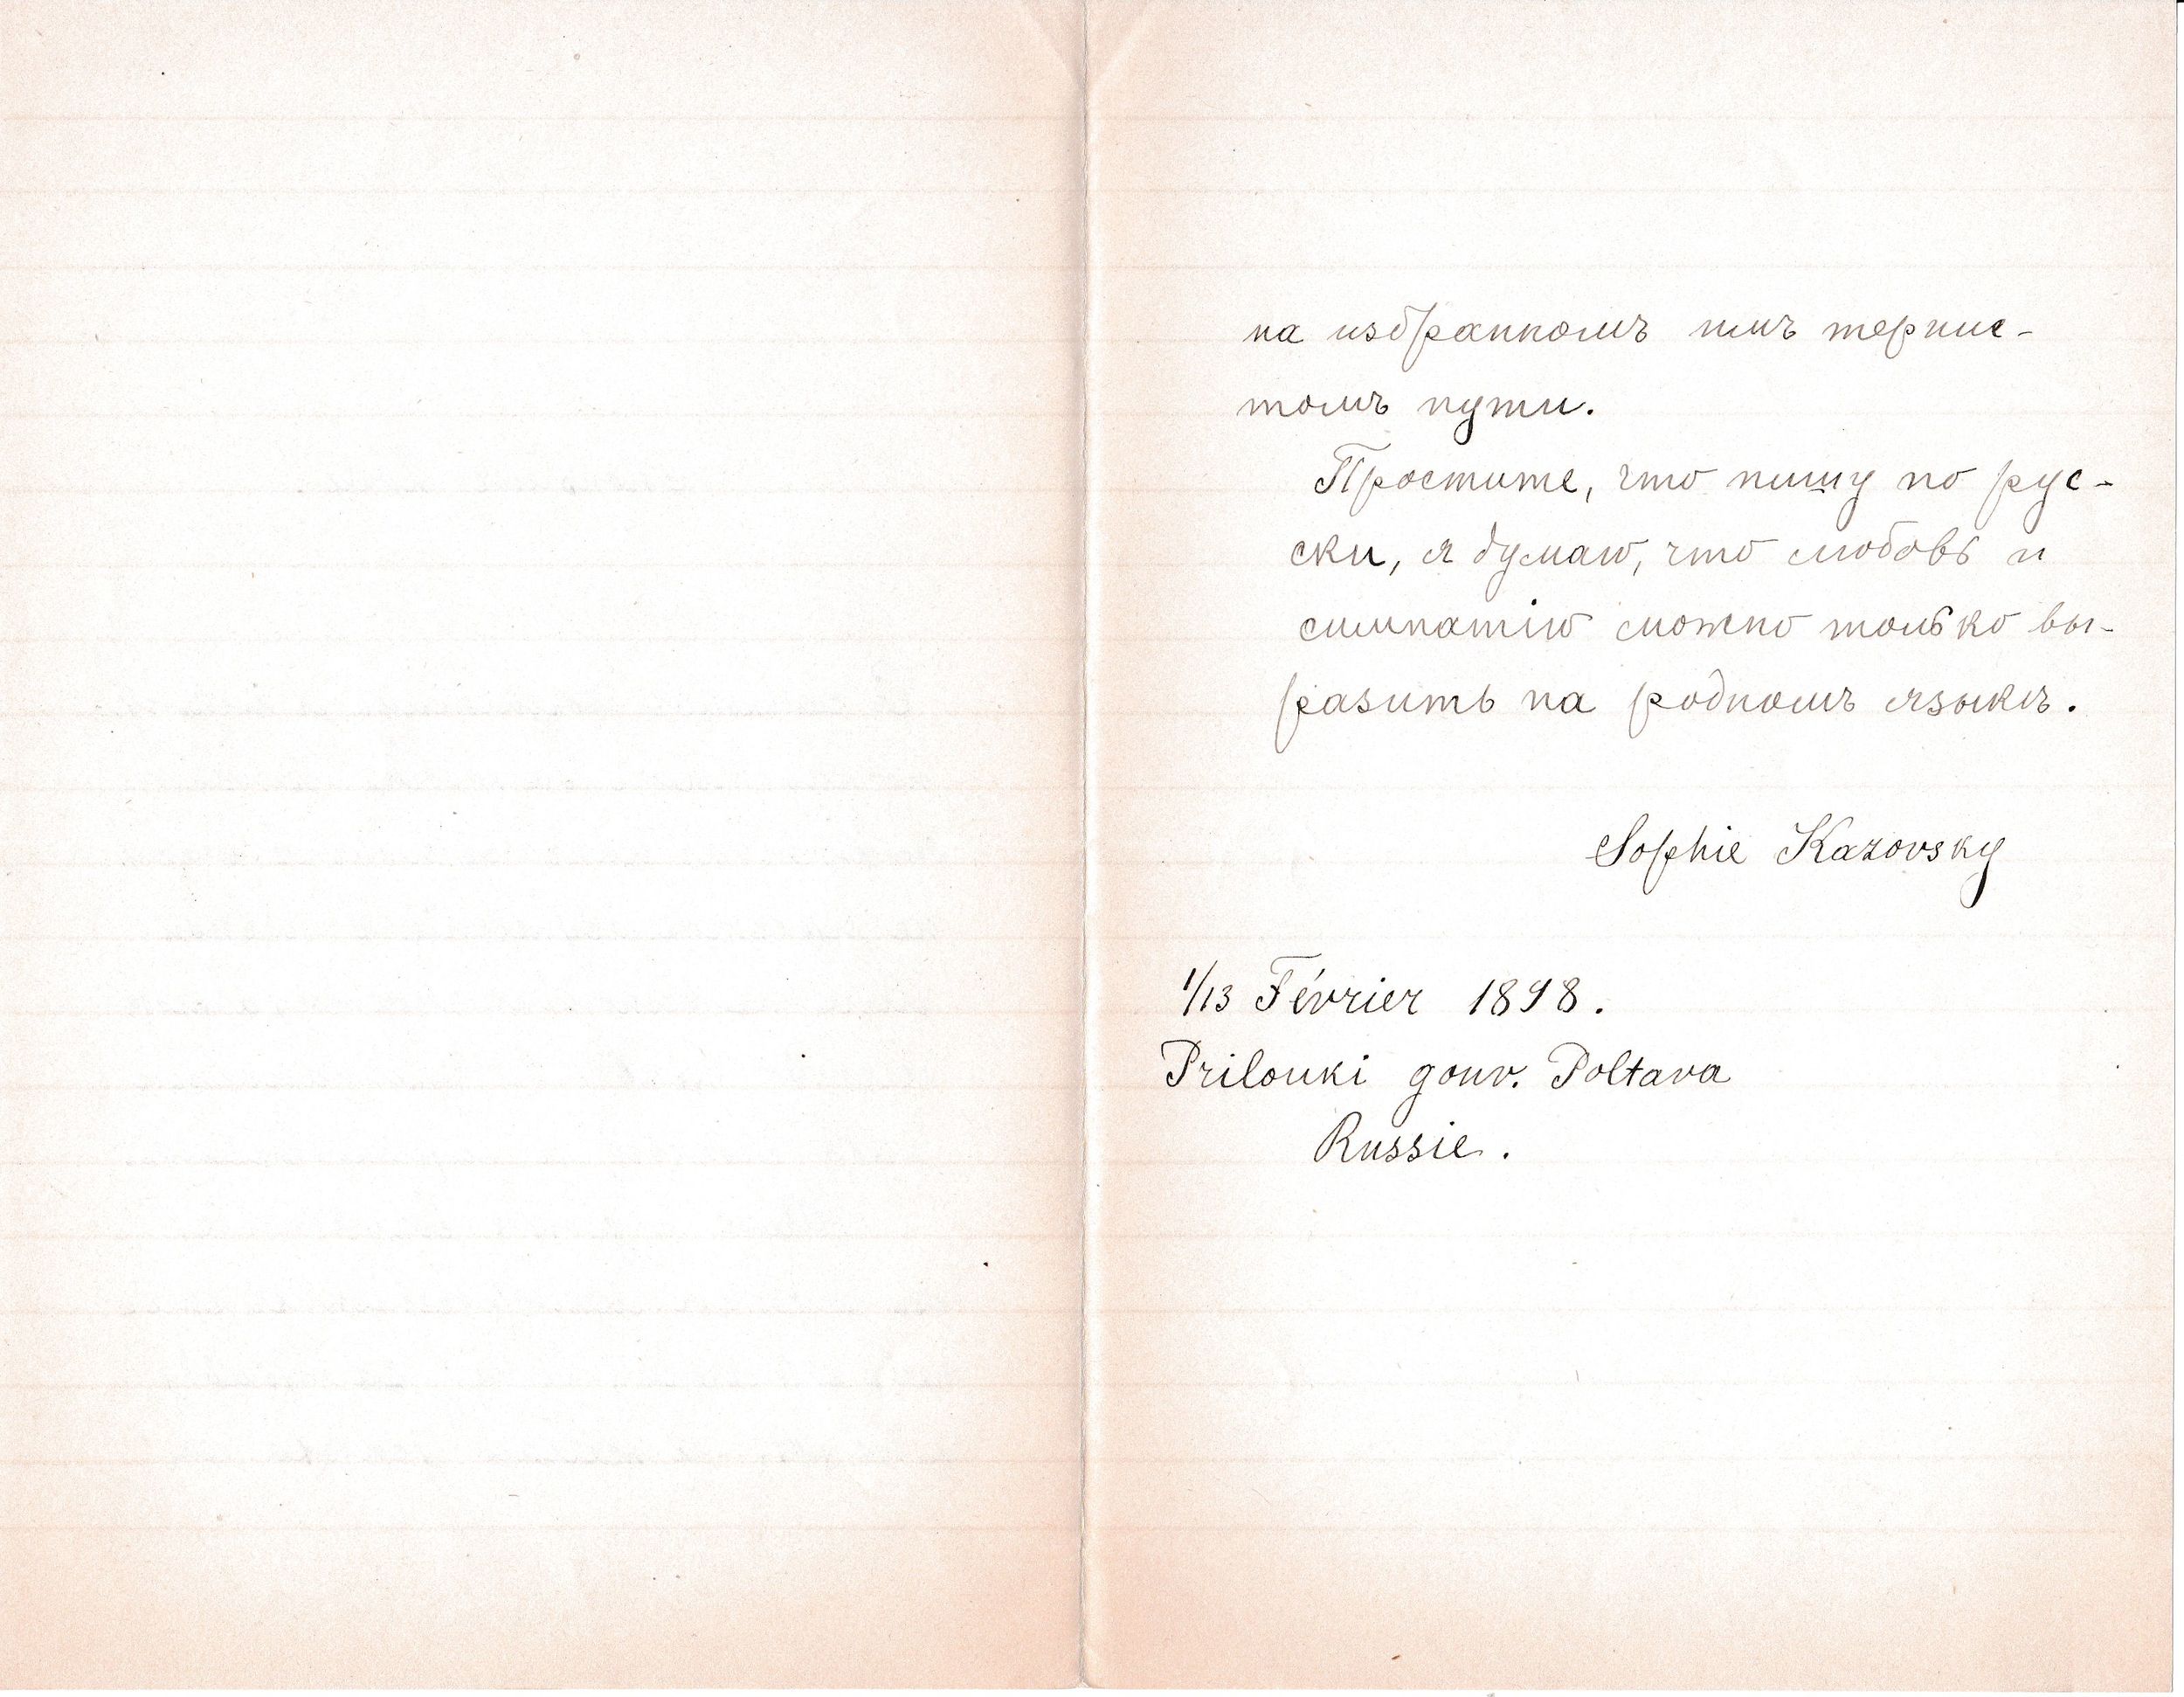 на избранномъ имъ тернис-
томъ пути.
Простите, что пишу по рус-
ски, я думаю, что любовь и
симпатію можно только вы-
разить на родномъ языкѣ.
Sophie Kazovsky
1/13 Février 1898.
Prilouki gouv. Poltava
Russie.